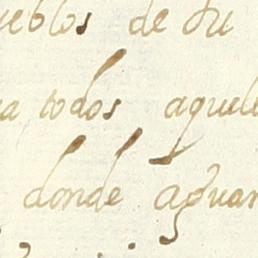 ueblos de su
a todos aquell
donde aguar